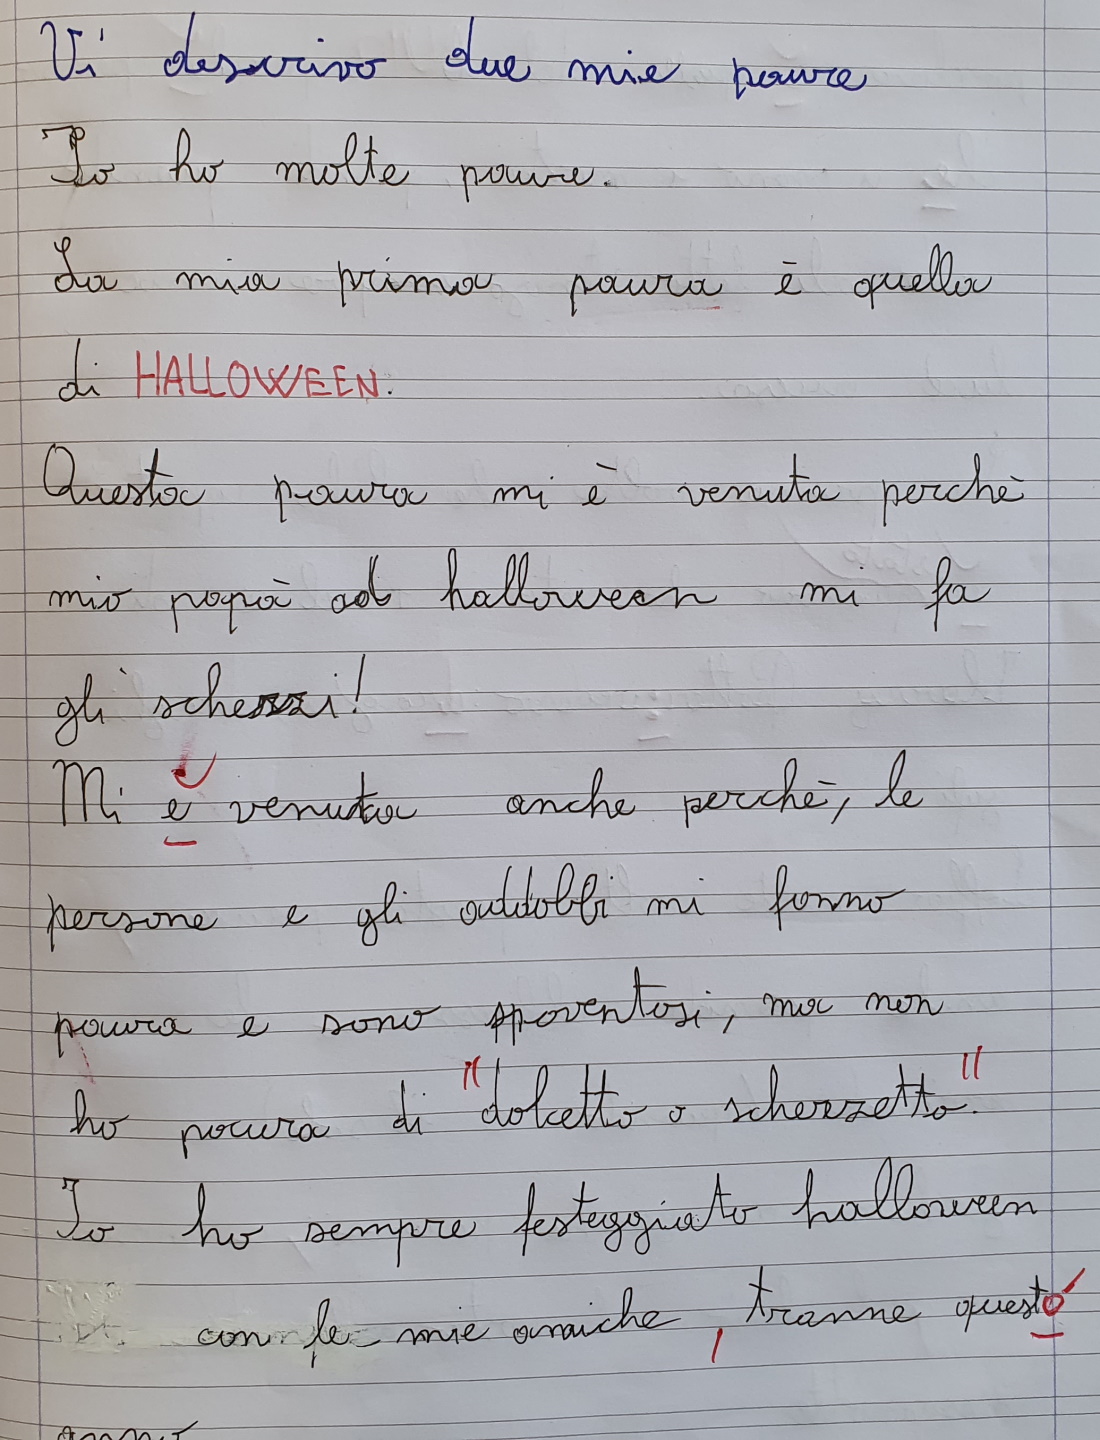 Vi descrivo due mie paure
Io ho molte paure.
La mia prima paura è quella
di HALLOWEEN.
Questa paura mi è venuta perchè
mio papà ad halloween mi fa
gli scherzi!
Mi è venuta anche perchè, le
persone e gli addobbi mi fanno
paura e sono spaventosi, ma non
ho paura di "dolcetto o scherzetto".
Io ho sempre festeggiato halloween
con le mie amiche, tranne questo
anno